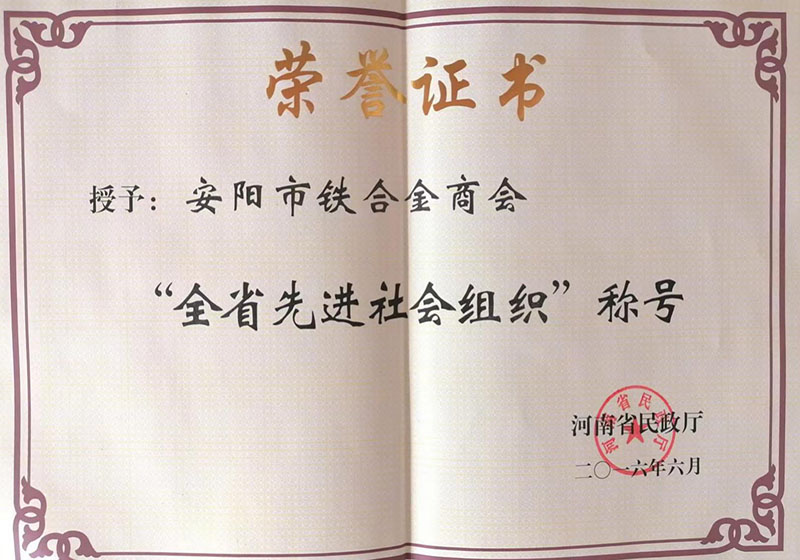 荣誉证书
授予：安阳市铁合金商会
“全省先进社会组织”称号
河南省民政厅
河南省民政厅
二〇一六年六月